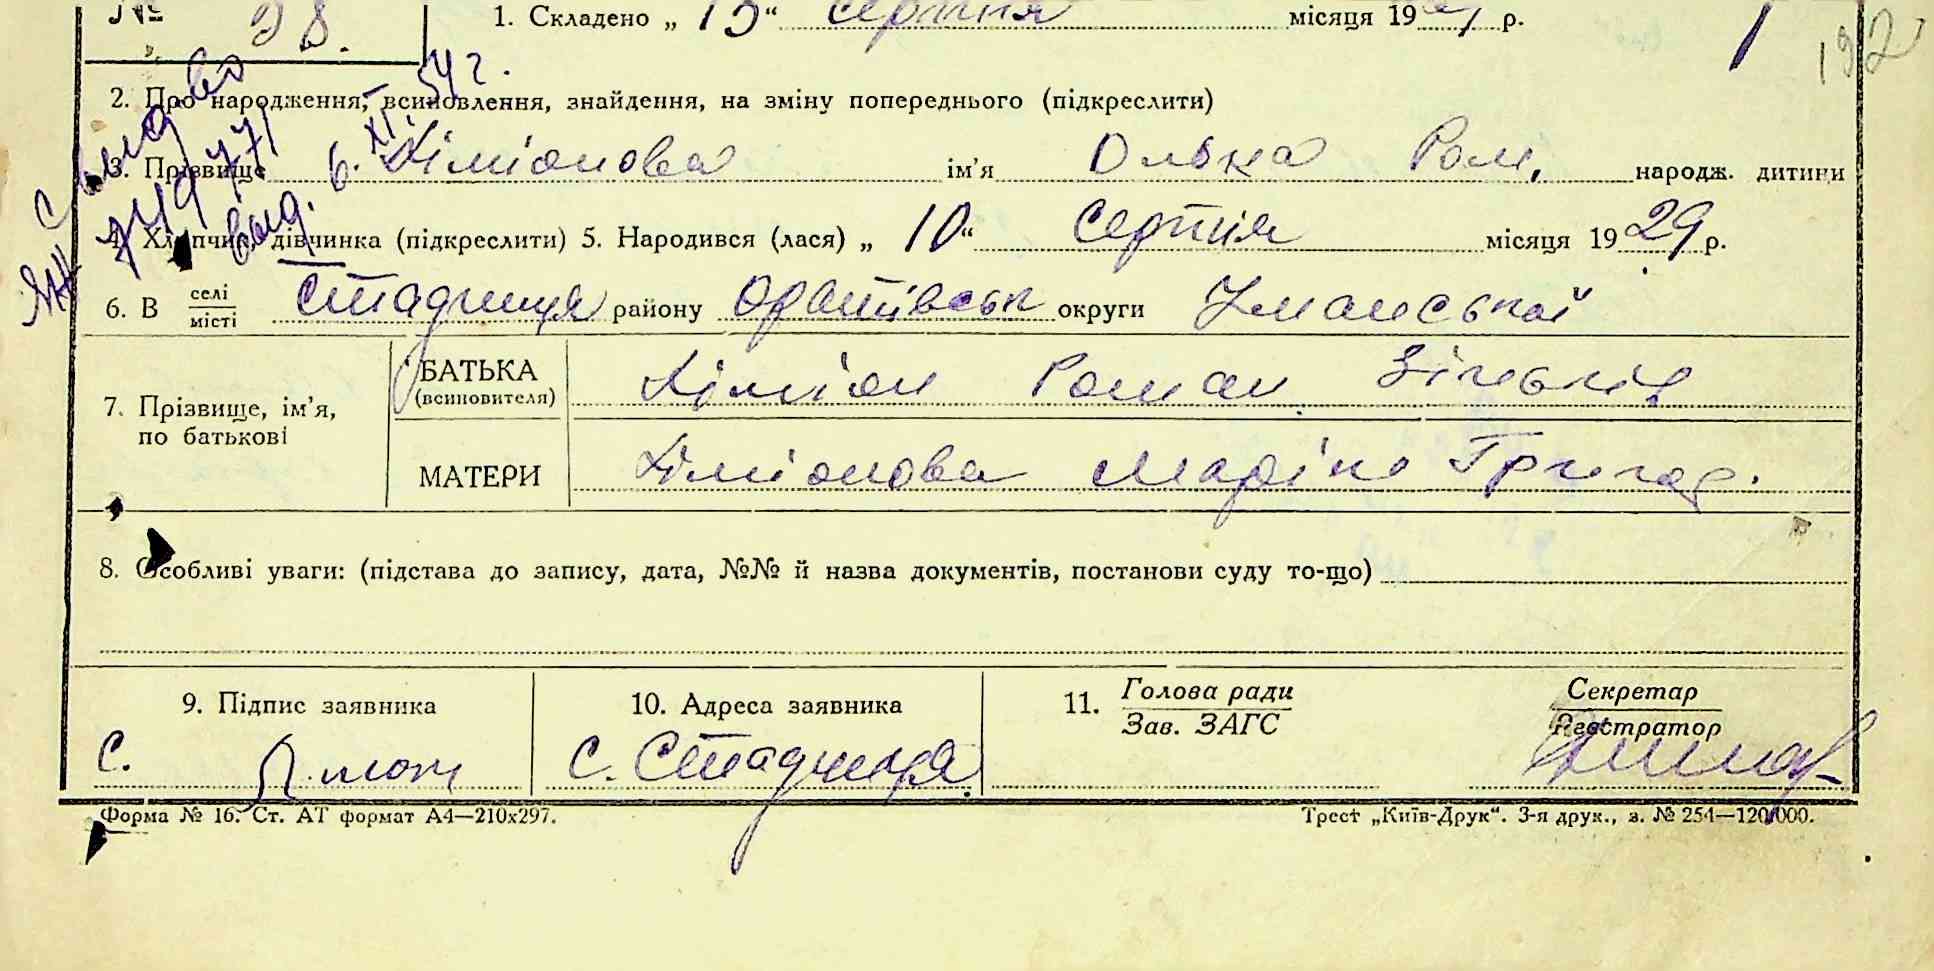 № 98. 1. Складено „ 15 “ серпня місяця 19 29 р.
192
2. Про народження, всиновлення, знайдення, на зміну попереднього (підкреслити)
3. Прізвище Діміонова ім’я Ольха Ром. народж. дитини
4. Хлопчик, дівчинка (підкреслити) 5. Народився (лася) „ 10 “ серпня місяця 19 29 р.
6. В селі/місті Стадниця району Оратівськ округи Уманської
7. Прізвище, ім’я, по батькові
БАТЬКА (всиновителя) Діміон Роман Зіньків
МАТЕРИ Діміонова Маріна Григор.
8. Особливі уваги: (підстава до запису, дата, №№ й назва документів, постанови суду то-що)
9. Підпис заявника 10. Адреса заявника 11. Голова ради / Зав. ЗАГС Секретар / Реєстратор
с. с. Стадниця
Форма № 16. Ст. АТ формат А4—210x297. Трест „Київ-Друк“. 3-я друк., з. № 254—120.000.
выд. 6. XI. 54 г.